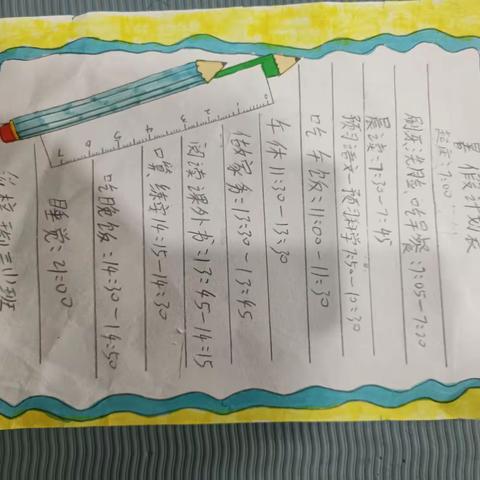 暑假计划表
起床:7:00
刷牙洗脸、吃早餐:7:05-7:30
晨读:7:30-7:45
预习语文 预习数学7:50-10:30
吃午饭:11:00-11:30
午休11:30-13:30
做家务:13:30-13:45
阅读课外书:13:45-14:15
口算、练字14:15-14:30
吃晚饭:14:30-14:50
睡觉:21:00